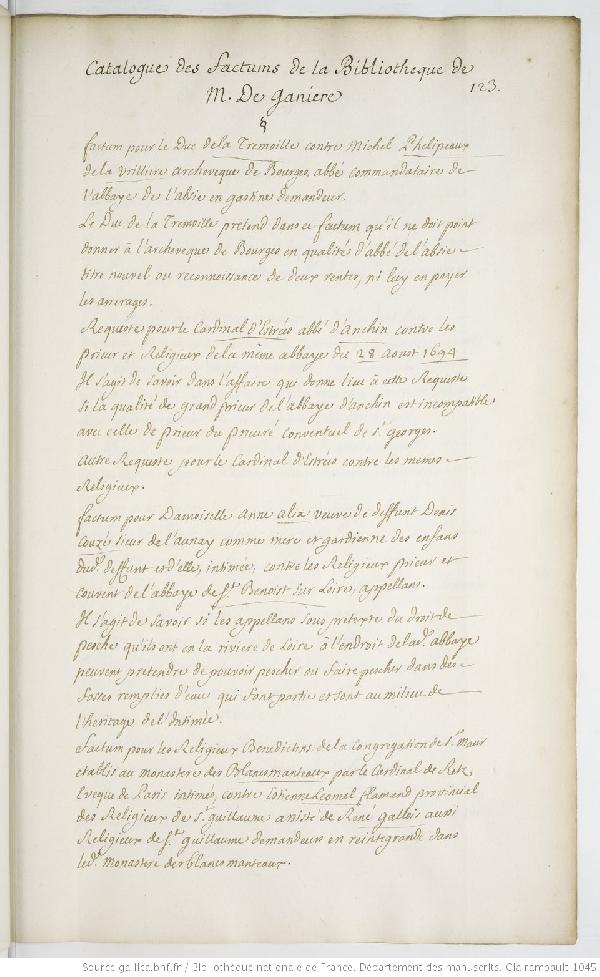 Catalogue des factums de la Bibliotheque de
M. De Ganiere
123.
§
factum pour le Duc de la Tremoille contre Michel Phelipeaux
de la Vrilliere archeveque de Bourges, abbé commandataire de
l'abbaye de l'absie en gastine demandeur.
Le Duc de la Tremoille pretend dans ce factum qu'il ne doit point
donner à l'archeveque de Bourges en qualité d'abbé de l'absie
titre nouvel ou reconnoissance de deux rentes, ni luy en payer
les arrerages.
Requeste pour le Cardinal d'Estrées abbé d'anchin contre les
prieur et Religieux de la même abbaye du 28 aoust 1694
Il s'agit de savoir dans l'affaire qui donne lieu à cette Requeste
si la qualité de grand prieur de l'abbaye d'anchin est incompatible
avec celle de prieur du prieuré conventuel de st. georges.
autre Requeste pour le Cardinal d'Estrées contre les memes
Religieux.
factum pour Damoiselle anne alix veuve de deffunt Denis
Couzé sieur de l'aunay comme mere et gardienne des enfans
dud. deffunt et d'elle, intimée, contre les Religieux prieur et
couvent de l'abbaye de St. Benoist sur Loire, appellans.
Il s'agit de savoir si les appellans sous pretexte du droit de
pesche qu'ils ont en la riviere de Loire à l'endroit de lad. abbaye
peuvent pretendre de pouvoir pescher ou faire pescher dans des
fosses remplies d'eau qui font partie et sont au milieu de
l'heritage de l'Intimée.
Factum pour les Religieux Benedictins de la Congregation de St. Maur
etablis au monastere des Blancsmanteaux par le Cardinal de Retz
Eveque de Paris intimés, contre Estienne flamend provincial
des Religieux de st. guillaume assisté de René gallois aussi
Religieux de St. guillaume demandeurs en reintegrande dans
led. monastere des blancs manteaux.
Source gallica.bnf.fr / Bibliothèque nationale de France. Département des manuscrits. Clairambault 1045